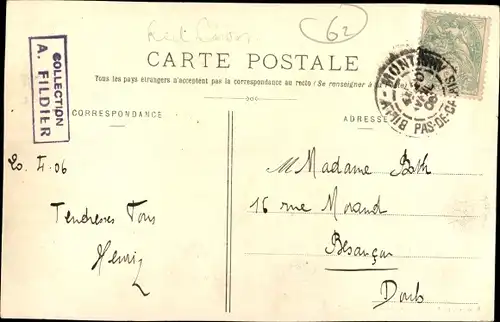 62
CARTE POSTALE
Tous les pays étrangers n'acceptent pas la correspondance au recto (Se renseigner à la
COLLECTION
A. FILDIER
CORRESPONDANCE
ADRESSE
BILLY-MONTIGNY
PAS-DE-CA
20. 4. 06
Tendresses Tous
Henri
Madame Both
16 rue Morand
Besançon
Doubs